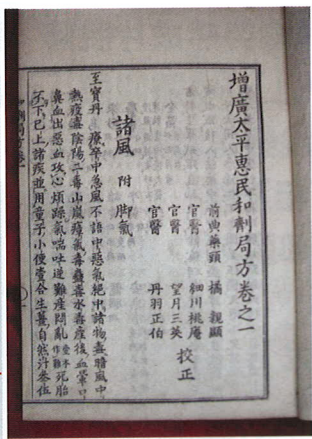 增廣太平惠民和劑局方卷之一
前典藥頭 橘 親顯
官醫 細川桃庵
官醫 望月三英 校正
官醫 丹羽正伯
諸風 附 脚氣
至寶丹 療卒中急風不語中惡氣絕中諸物毒暗風中
熱疫毒陰陽二毒山嵐瘴氣毒蠱毒水毒產後血暈口
鼻血出惡血攻心煩躁氣喘吐逆難產悶亂 死胎
不下已上諸疾並用童子小便壹合生薑自然汁叁伍